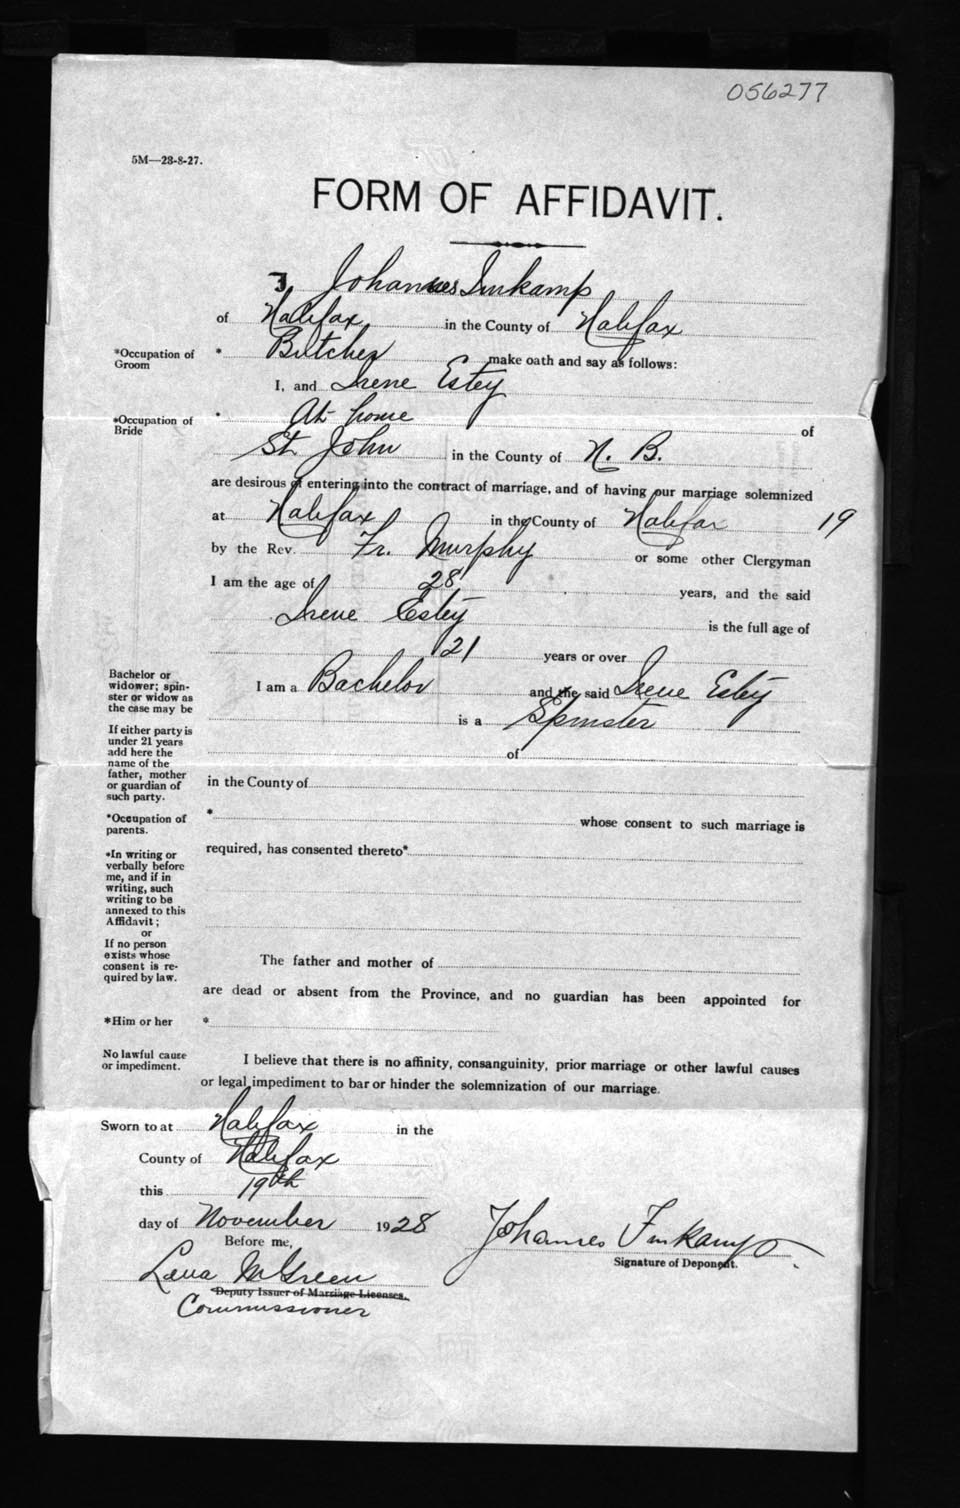 056277
5M—23-8-27.
FORM OF AFFIDAVIT.
I, Johannes Imkamp
of Halifax in the County of Halifax
*Occupation of Groom * Butcher make oath and say as follows:
I, and Irene Estey
*Occupation of Bride * At home of
St. John in the County of N. B.
are desirous of entering into the contract of marriage, and of having our marriage solemnized
at Halifax in the County of Halifax 19
by the Rev. Fr. Murphy or some other Clergyman
I am the age of 28 years, and the said
Irene Estey is the full age of
21 years or over
Bachelor or widower; spinster or widow as the case may be
I am a Bachelor and the said Irene Estey
is a Spinster
If either party is under 21 years add here the name of the father, mother or guardian of such party.
of
in the County of
*Occupation of parents.
* whose consent to such marriage is
required, has consented thereto*
*In writing or verbally before me, and if in writing, such writing to be annexed to this Affidavit;
or
If no person exists whose consent is required by law.
The father and mother of
are dead or absent from the Province, and no guardian has been appointed for
*Him or her *
No lawful cause or impediment.
I believe that there is no affinity, consanguinity, prior marriage or other lawful causes
or legal impediment to bar or hinder the solemnization of our marriage.
Sworn to at Halifax in the
County of Halifax
this 19th
day of November 1928
Before me,
Johannes Imkamp
Signature of Deponent.
Lena McGreen
Deputy Issuer of Marriage Licenses.
Commissioner